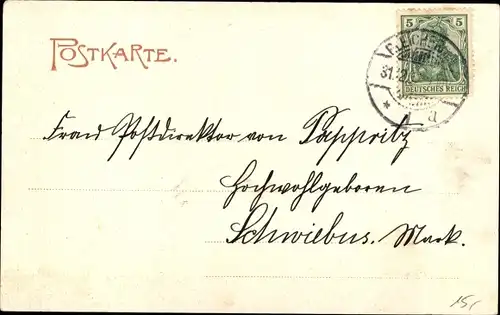 POSTKARTE.
5 5
DEUTSCHES REICH
31.12
Frau Postdirektor von Pappritz
Hochwohlgeboren
Schwiebus. Mark.
15,